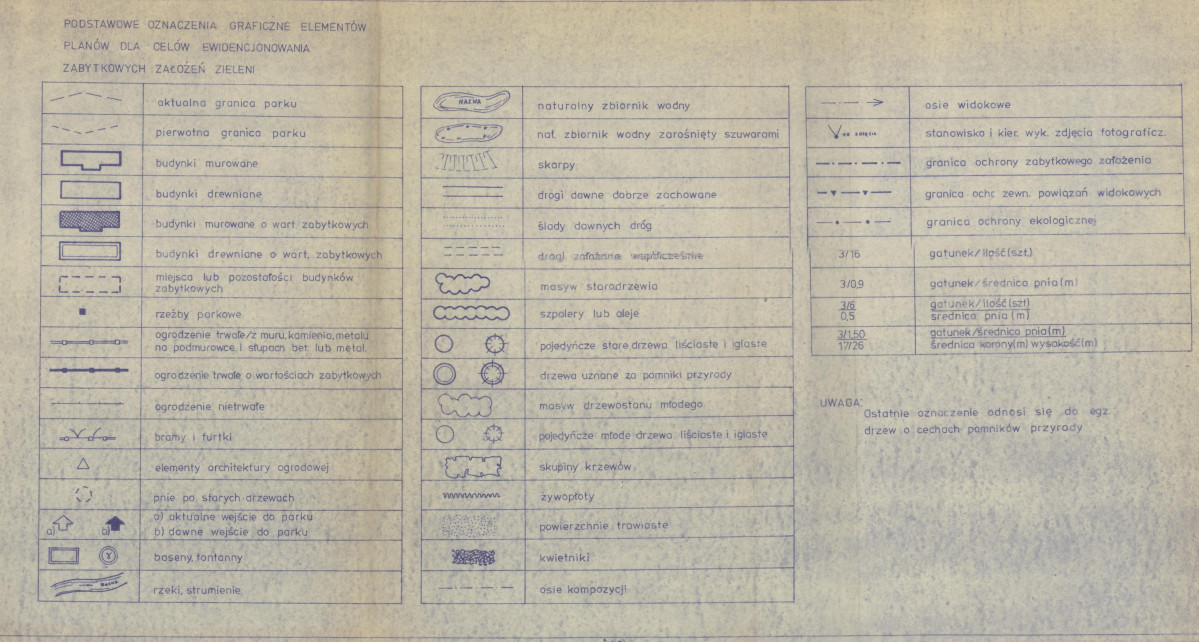 PODSTAWOWE OZNACZENIA GRAFICZNE ELEMENTÓW
PLANÓW DLA CELÓW EWIDENCJONOWANIA
ZABYTKOWYCH ZAŁOŻEŃ ZIELENI
aktualna granica parku
pierwotna granica parku
budynki murowane
budynki drewniane
budynki murowane o wart. zabytkowych
budynki drewniane o wart. zabytkowych
miejsca lub pozostałości budynków
zabytkowych
rzeźby parkowe
ogrodzenie trwałe/z muru, kamienia, metalu
na podmurówce i słupach bet. lub metal.
ogrodzenie trwałe o wartościach zabytkowych
ogrodzenie nietrwałe
bramy i furtki
elementy architektury ogrodowej
pnie po starych drzewach
a) b)
a) aktualne wejście do parku
b) dawne wejście do parku
baseny, fontanny
NAZWA
rzeki, strumienie
NAZWA
naturalny zbiornik wodny
nat. zbiornik wodny zarośnięty szuwarami
skarpy
drogi dawne dobrze zachowane
ślady dawnych dróg
drogi założone współcześnie
masyw starodrzewia
szpalery lub aleje
pojedyńcze stare drzewa liściaste i iglaste
drzewa uznane za pomniki przyrody
masyw drzewostanu młodego
pojedyńcze młode drzewa liściaste i iglaste
skupiny krzewów
żywopłoty
powierzchnie trawiaste
kwietniki
osie kompozycji
osie widokowe
stanowisko i kier. wyk. zdjęcia fotograficz.
granica ochrony zabytkowego założenia
granica ochr. zewn. powiązań widokowych
granica ochrony ekologicznej
3/16 gatunek/ilość(szt.)
3/0,9 gatunek/średnica pnia(m)
3/6 gatunek/ilość(szt)
0,5 średnica pnia (m)
3/1,50 gatunek/średnica pnia(m)
17/26 średnica korony(m) wysokość(m)
UWAGA:
Ostatnie oznaczenie odnosi się do egz.
drzew o cechach pomników przyrody